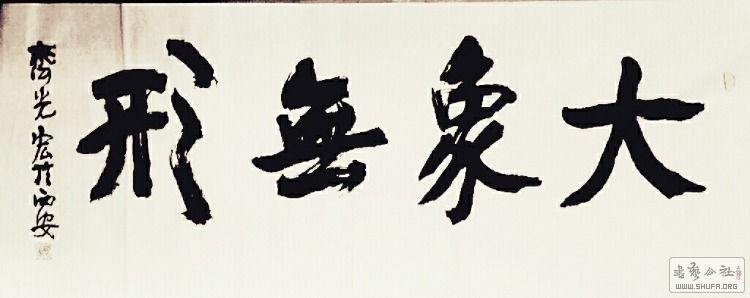 大象無形
光宏於西安
書藝公社
WWW.SHUFA.ORG